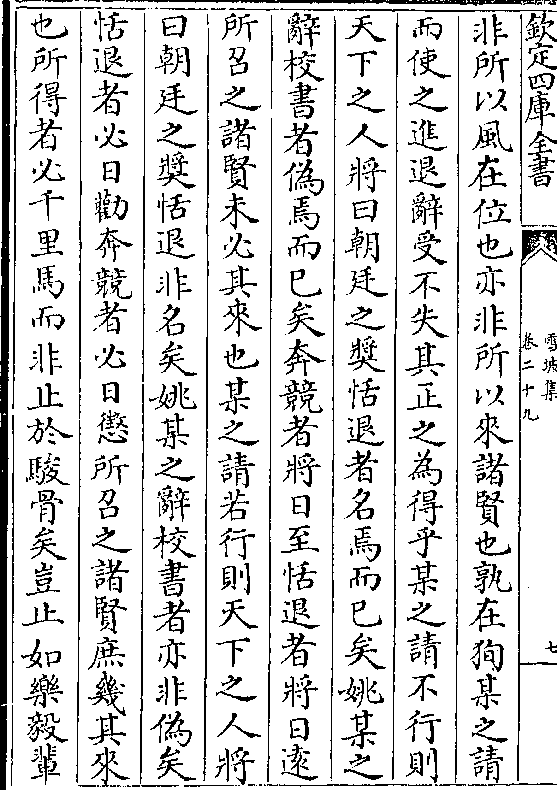 欽定四庫全書
雪坡集
卷二十九
七
非所以風在位也亦非所以來諸賢也孰在狥某之請
而使之進退辭受不失其正之為得乎某之請不行則
天下之人將曰朝廷之奬恬退者名焉而已矣姚某之
辭校書者偽焉而已矣奔競者將日至恬退者將日逺
所召之諸賢未必其來也某之請若行則天下之人將
曰朝廷之奬恬退非名矣姚某之辭校書者亦非偽矣
恬退者必日勸奔競者必日懲所召之諸賢庶幾其來
也所得者必千里馬而非止於駿骨矣豈止如樂毅輩